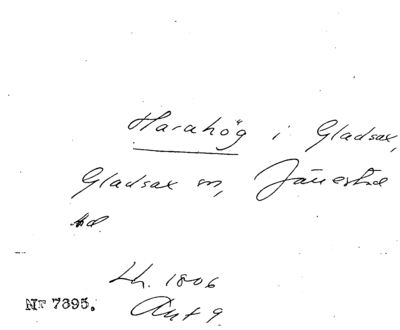 Harahög i Gladsax,
Gladsax sn, Järrestad
hd.
Lh. 1806
Akt 9.
Nr 7395.